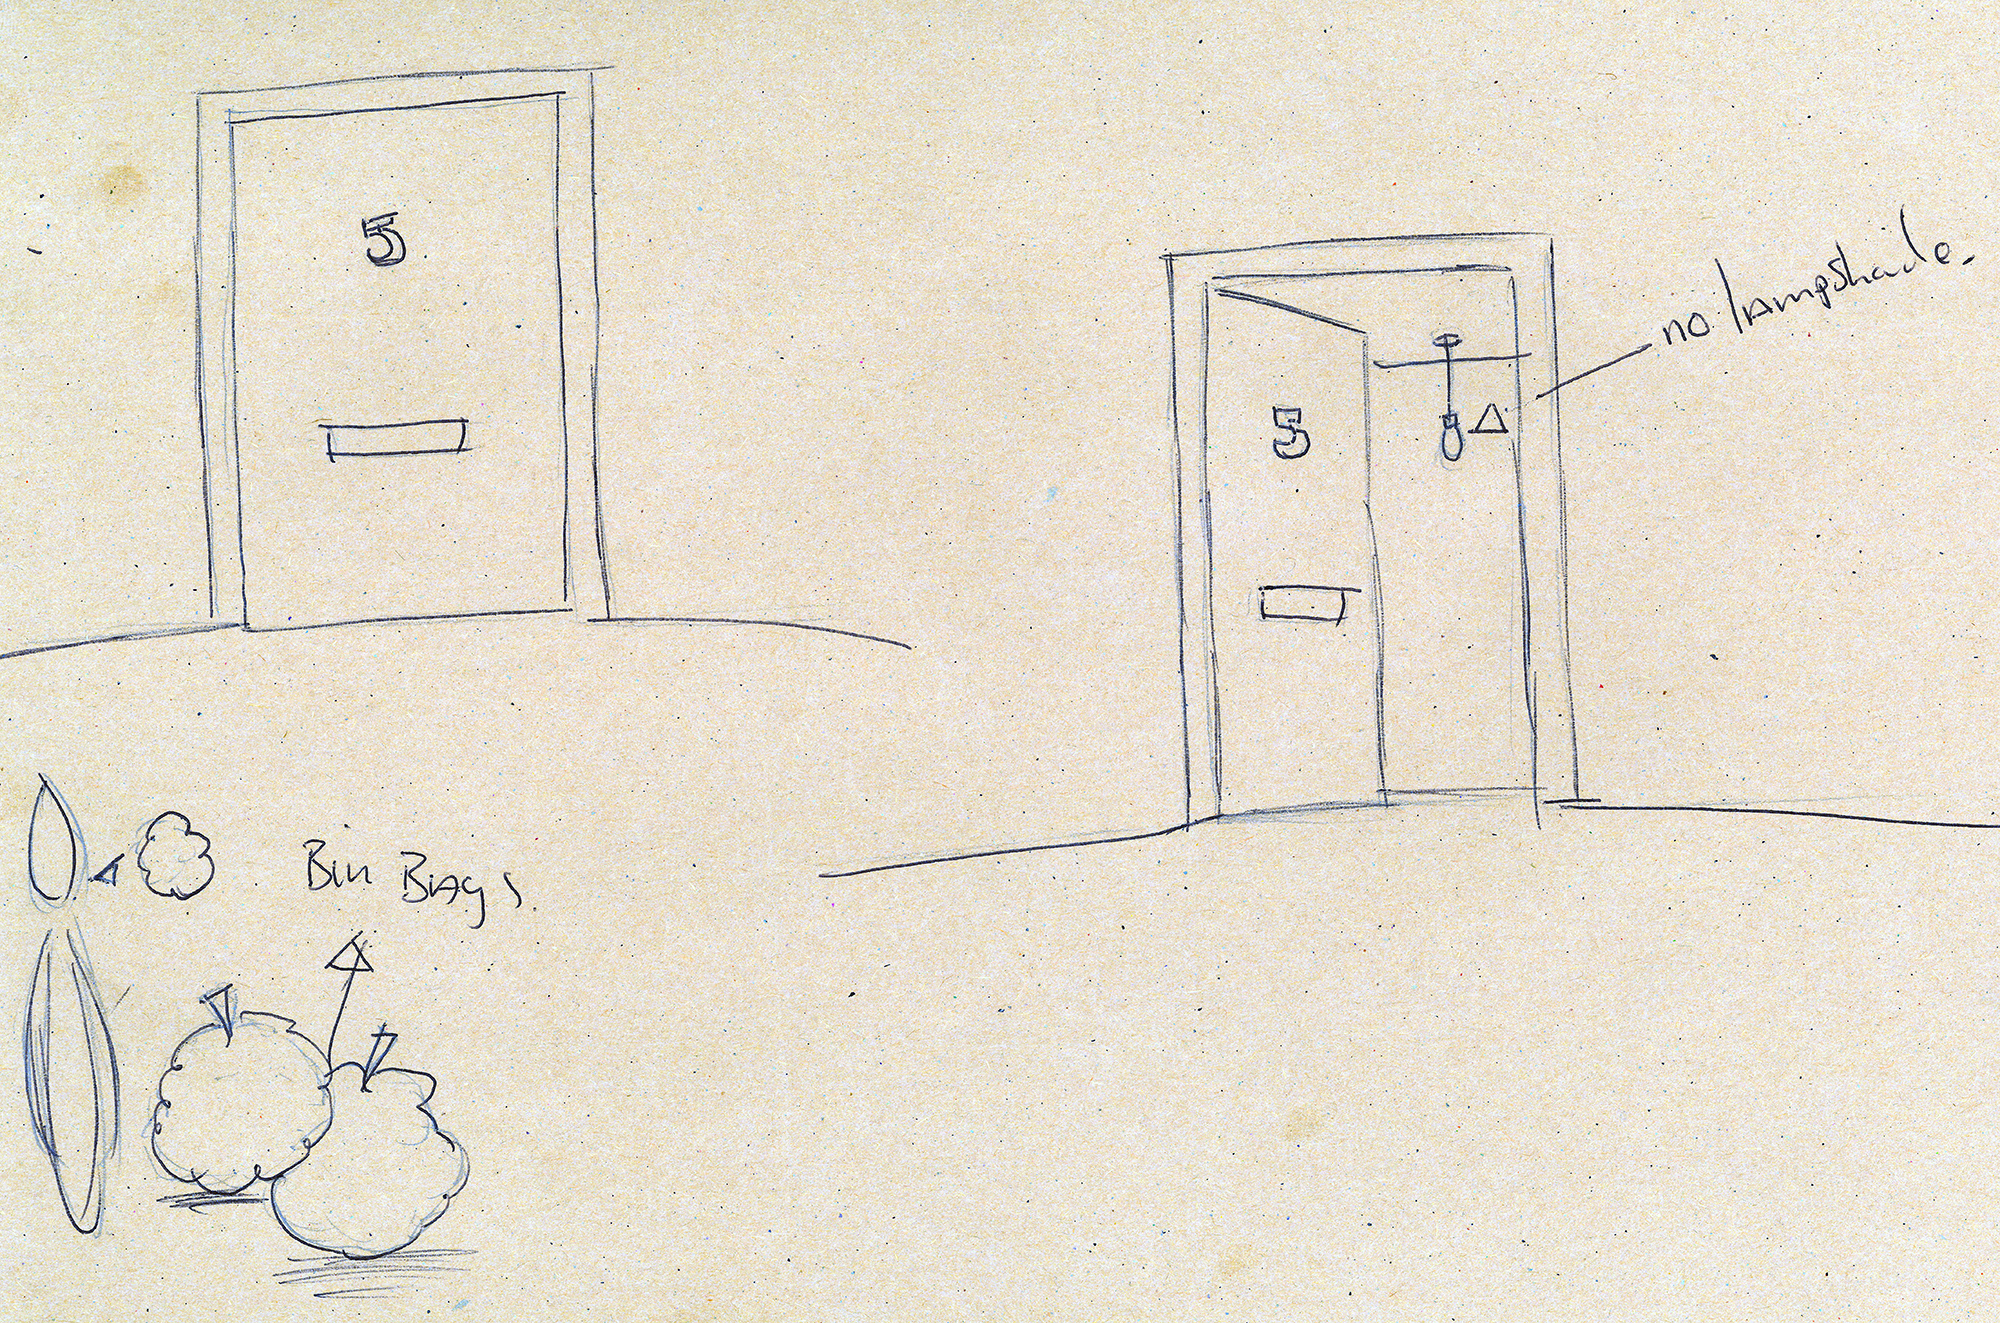 5
5
no lampshade.
Bin Bags.